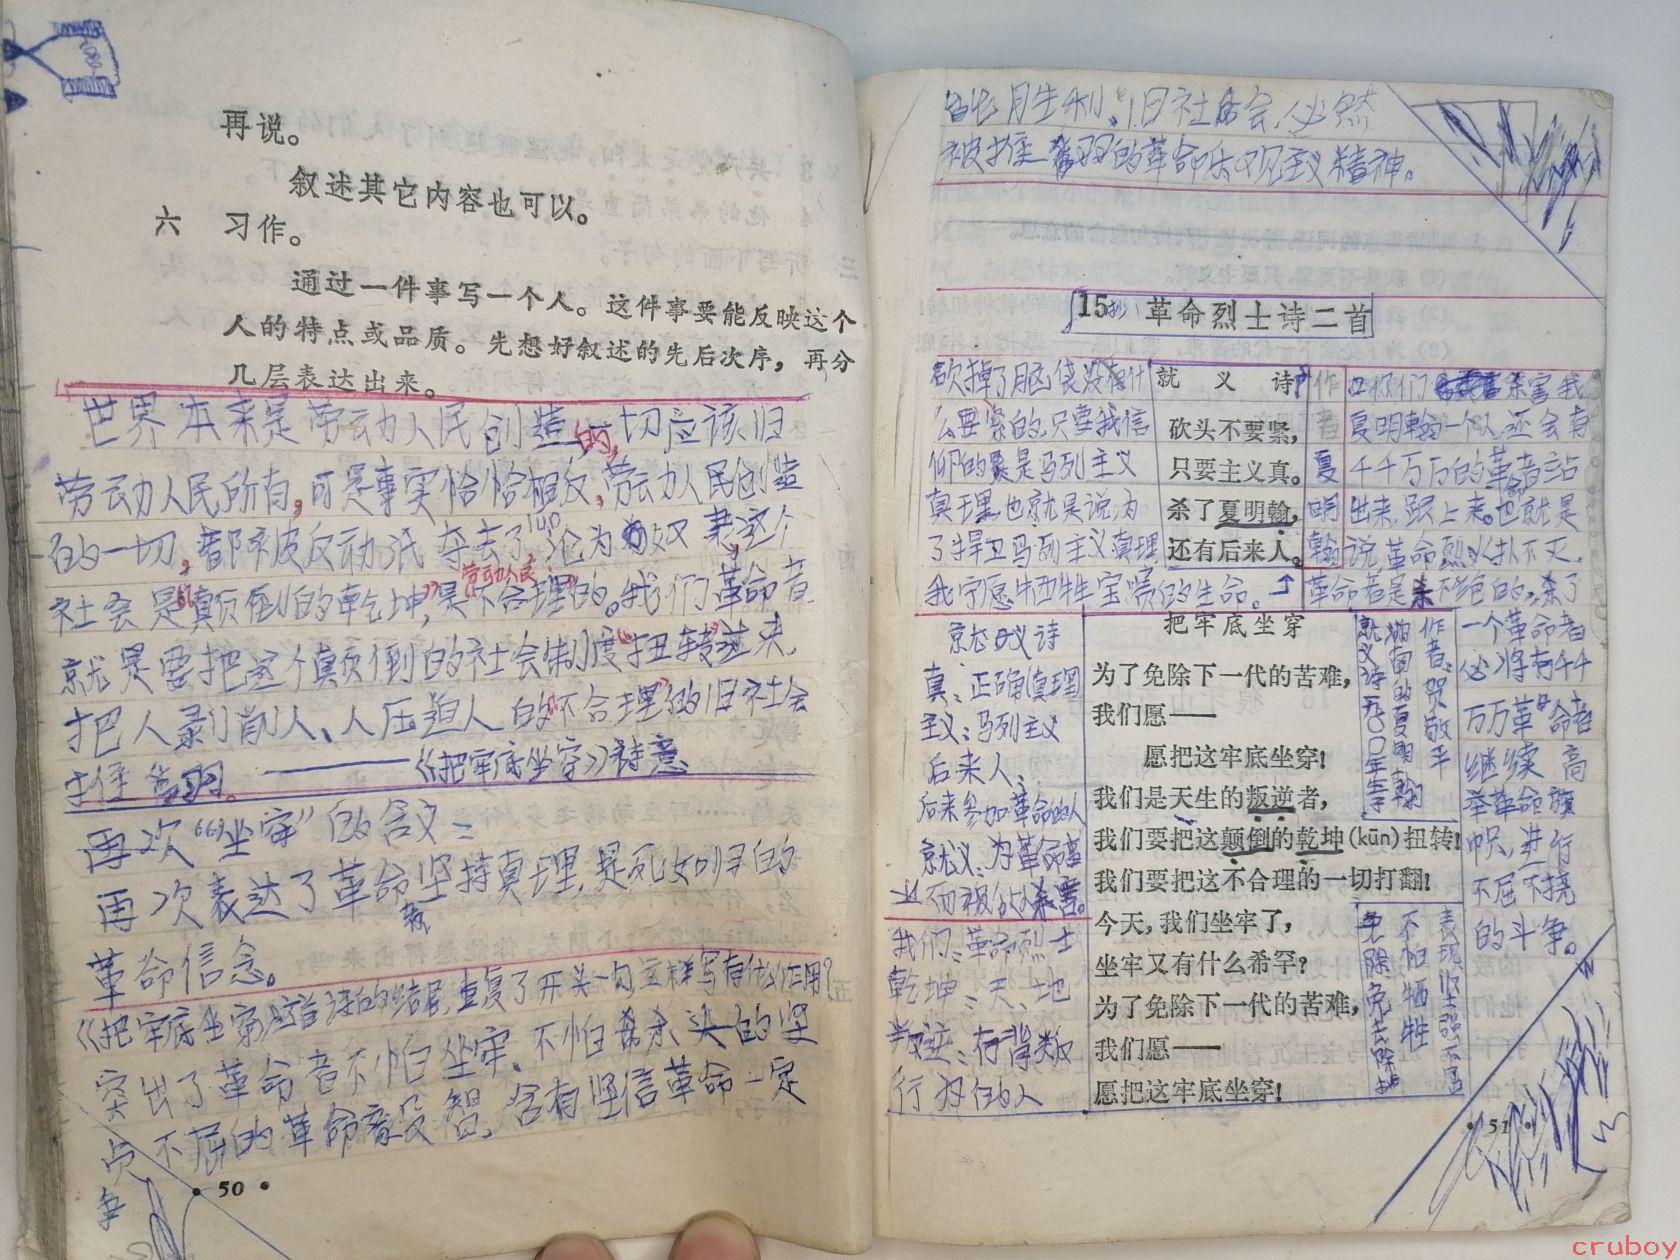 再说。
叙述其它内容也可以。
六 习作。
通过一件事写一个人。这件事要能反映这个
人的特点或品质。先想好叙述的先后次序，再分
几层表达出来。
世界本来是劳动人民创造的，一切应该归
劳动人民所有，可是事实恰恰相反，劳动人民创造
的一切，都被反动派夺去了，沦为奴
社会是颠倒的乾坤，是不合理的。我们革命者
劳动人民
就是要把这个颠倒的社会制度扭转过来，
把人剥削人、人压迫人的不合理的旧社会
《把牢底坐穿》诗意
再次“坐牢”的含义：
再次表达了革命坚持真理，是死如归的
革命信念。
《把牢底坐穿》这首诗的结尾，重复了开头一句，这样写有什么作用？
突出了革命者不怕坐牢、不怕杀头的坚
不屈的革命 含有坚信革命一定
争
• 50 •
胜利、旧社会必然
被推 的革命乐观主义精神。
15 革命烈士诗二首
就义诗
砍头不要紧，
只要主义真。
杀了夏明翰，
还有后来人。
砍掉了脑袋没有什
么要紧的，只要我信
仰的是马列主义
真理，也就是说，为
了捍卫马列主义真理，
我宁愿牺牲宝贵的生命。
作者夏明翰
敌们杀害我
夏明翰一个人，还会有
千千万万的革命者站
出来，跟上来。也就是
说，革命烈火扑不灭，
革命者是杀不绝的，杀了
一个革命者
必将有千千
万万革命者
继续高
举革命旗
帜，进行
不屈不挠
的斗争。
就义诗
真：正确（真理
主义：马列主义
后来人：
后来参加革命的人
就义：为革命事
业而被敌人杀害。
我们：革命烈士
乾坤：天、地
叛逆：有背叛
行为的人
把牢底坐穿
为了免除下一代的苦难，
我们愿——
愿把这牢底坐穿！
我们是天生的叛逆者，
我们要把这颠倒的乾坤(kūn)扭转！
我们要把这不合理的一切打翻！
今天，我们坐牢了，
坐牢又有什么希罕？
为了免除下一代的苦难，
我们愿——
愿把这牢底坐穿！
作者：贺敬平
湖南的夏明翰
就义诗
表现烈士强不屈
不怕牺牲
免除：免去除掉
• 51 •
cruboy